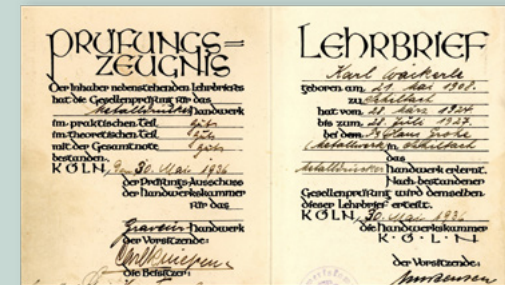 PRÜFUNGS=
ZEUGNIS
Der Inhaber nebenstehenden Lehrbriefes
hat die Gesellenprüfung für das
Metalldrücker Handwerk
im praktischen Teil gut
im theoretischen Teil gut
mit der Gesamtnote gut
bestanden.
KÖLN, den 30. Mai 1936
der Prüfungs-Ausschuss
der Handwerkskammer
für das
Graveur Handwerk
der Vorsitzende:
die Beisitzer:
LEHRBRIEF
Karl Wäckerle
geboren am 21. Mai 1908.
zu Schiltach
hat vom 28. März 1924
bis zum 28. Juli 1927.
bei dem Hans Grohe
Metallwerk in Schiltach
das
Metalldrücker Handwerk erlernt.
Nach bestandener
Gesellenprüfung wird demselben
dieser Lehrbrief erteilt.
KÖLN, 30. Mai 1936
die Handwerkskammer
K·Ö·L·N
der Vorsitzende: